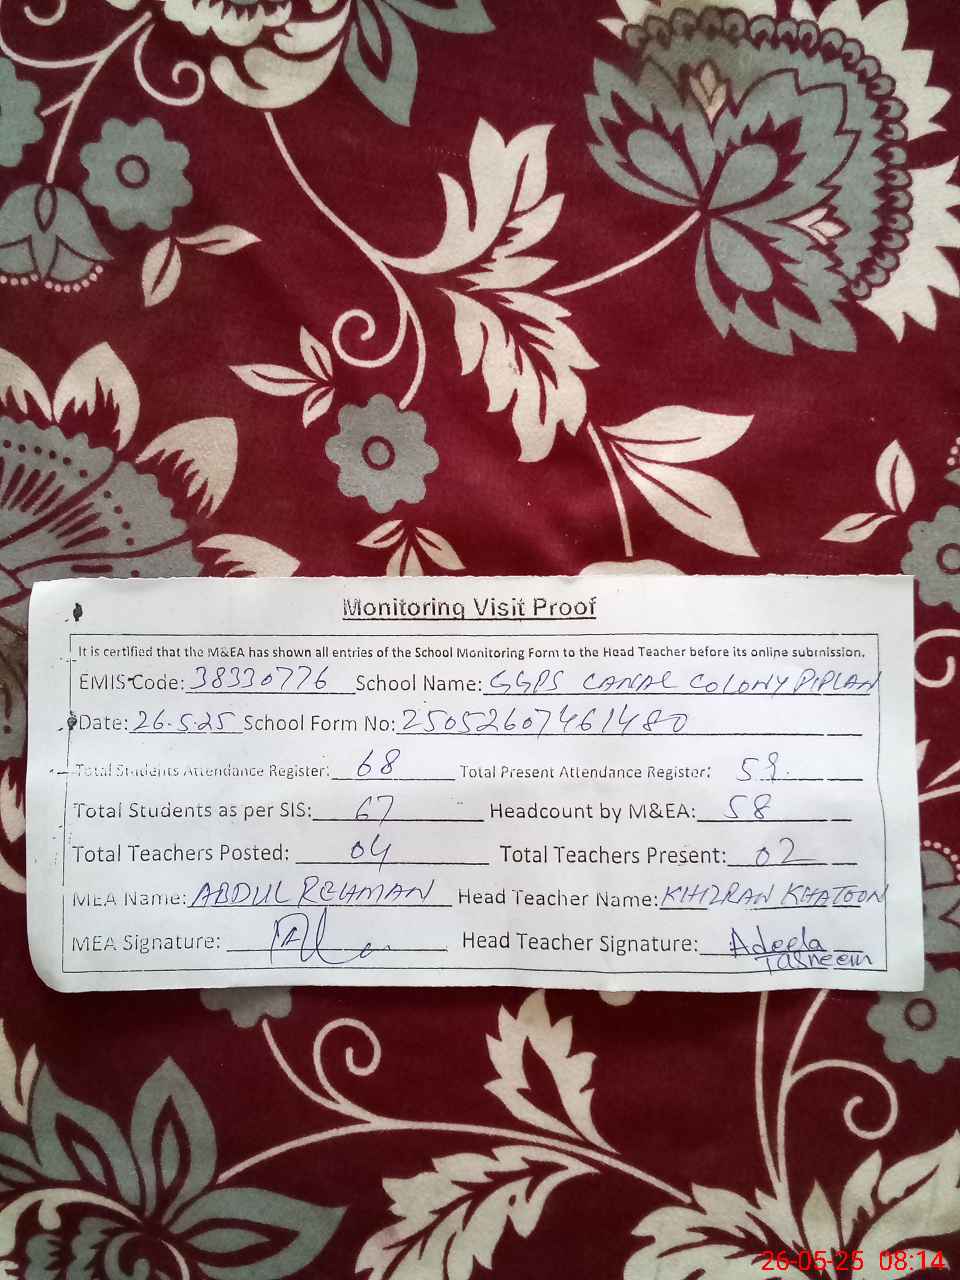 Monitoring Visit Proof
It is certified that the M&EA has shown all entries of the School Monitoring Form to the Head Teacher before its online submission.
EMIS Code: 38330776 School Name: GGPS CANAL COLONY PIPLAN
Date: 26.5.25 School Form No: 25052607461480
Total Students Attendance Register: 68 Total Present Attendance Register: 59
Total Students as per SIS: 67 Headcount by M&EA: 58
Total Teachers Posted: 04 Total Teachers Present: 02
MEA Name: ABDUL REHMAN Head Teacher Name: KHIZRAN KHATOON
MEA Signature: Head Teacher Signature: Adeela
Tasneem
26-05-25 08:14